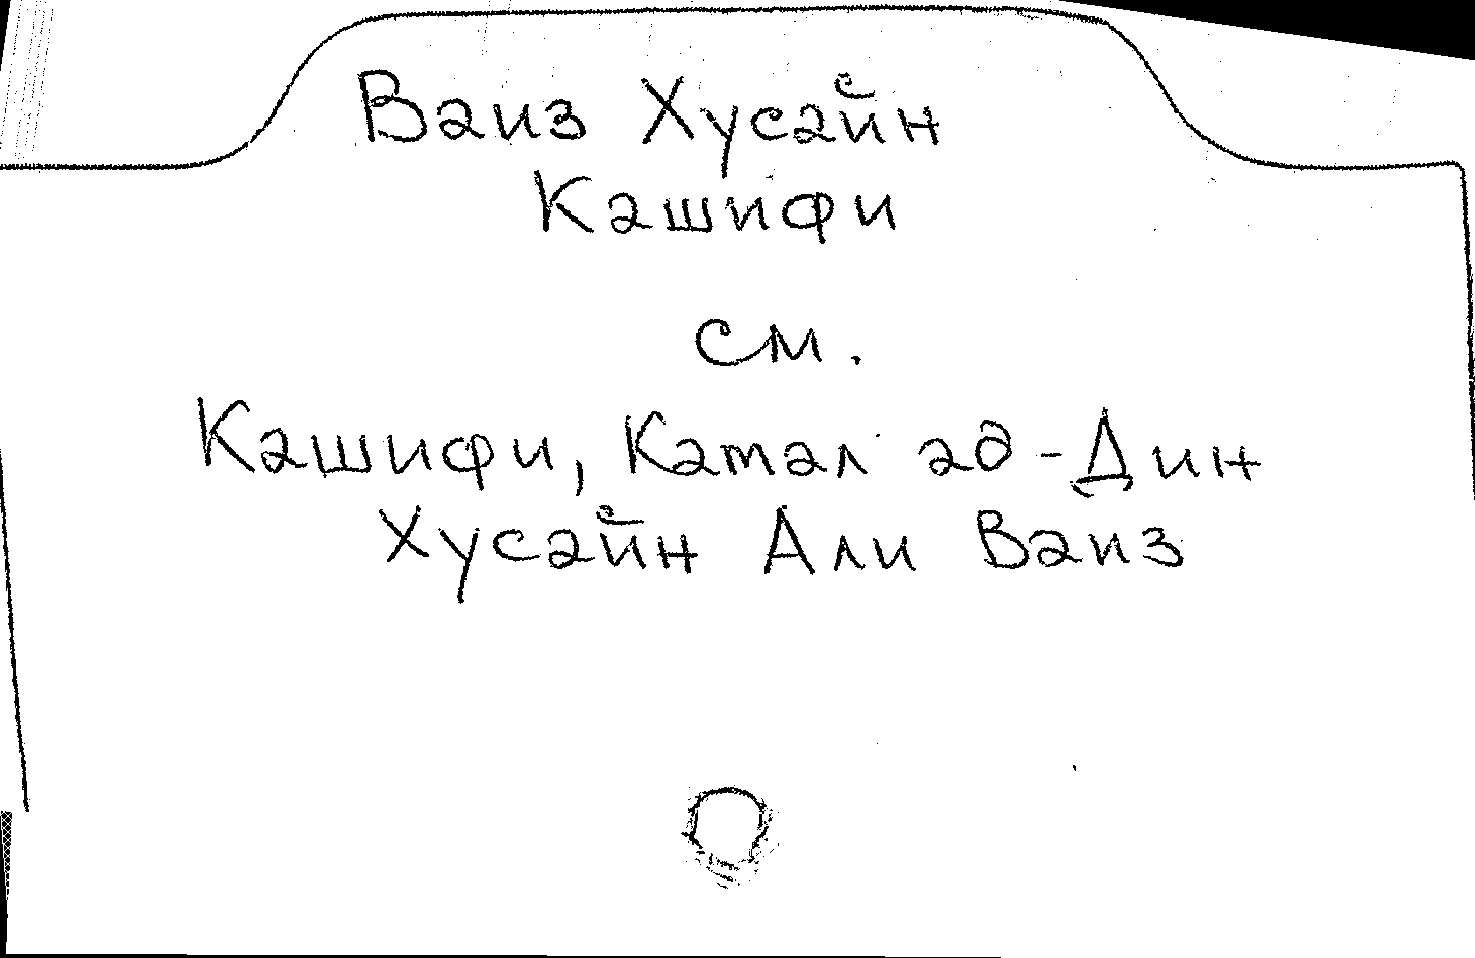 Ваиз Хусайн
Кашифи
см.
Кашифи, Камал ад-Дин
Хусайн Али Ваиз